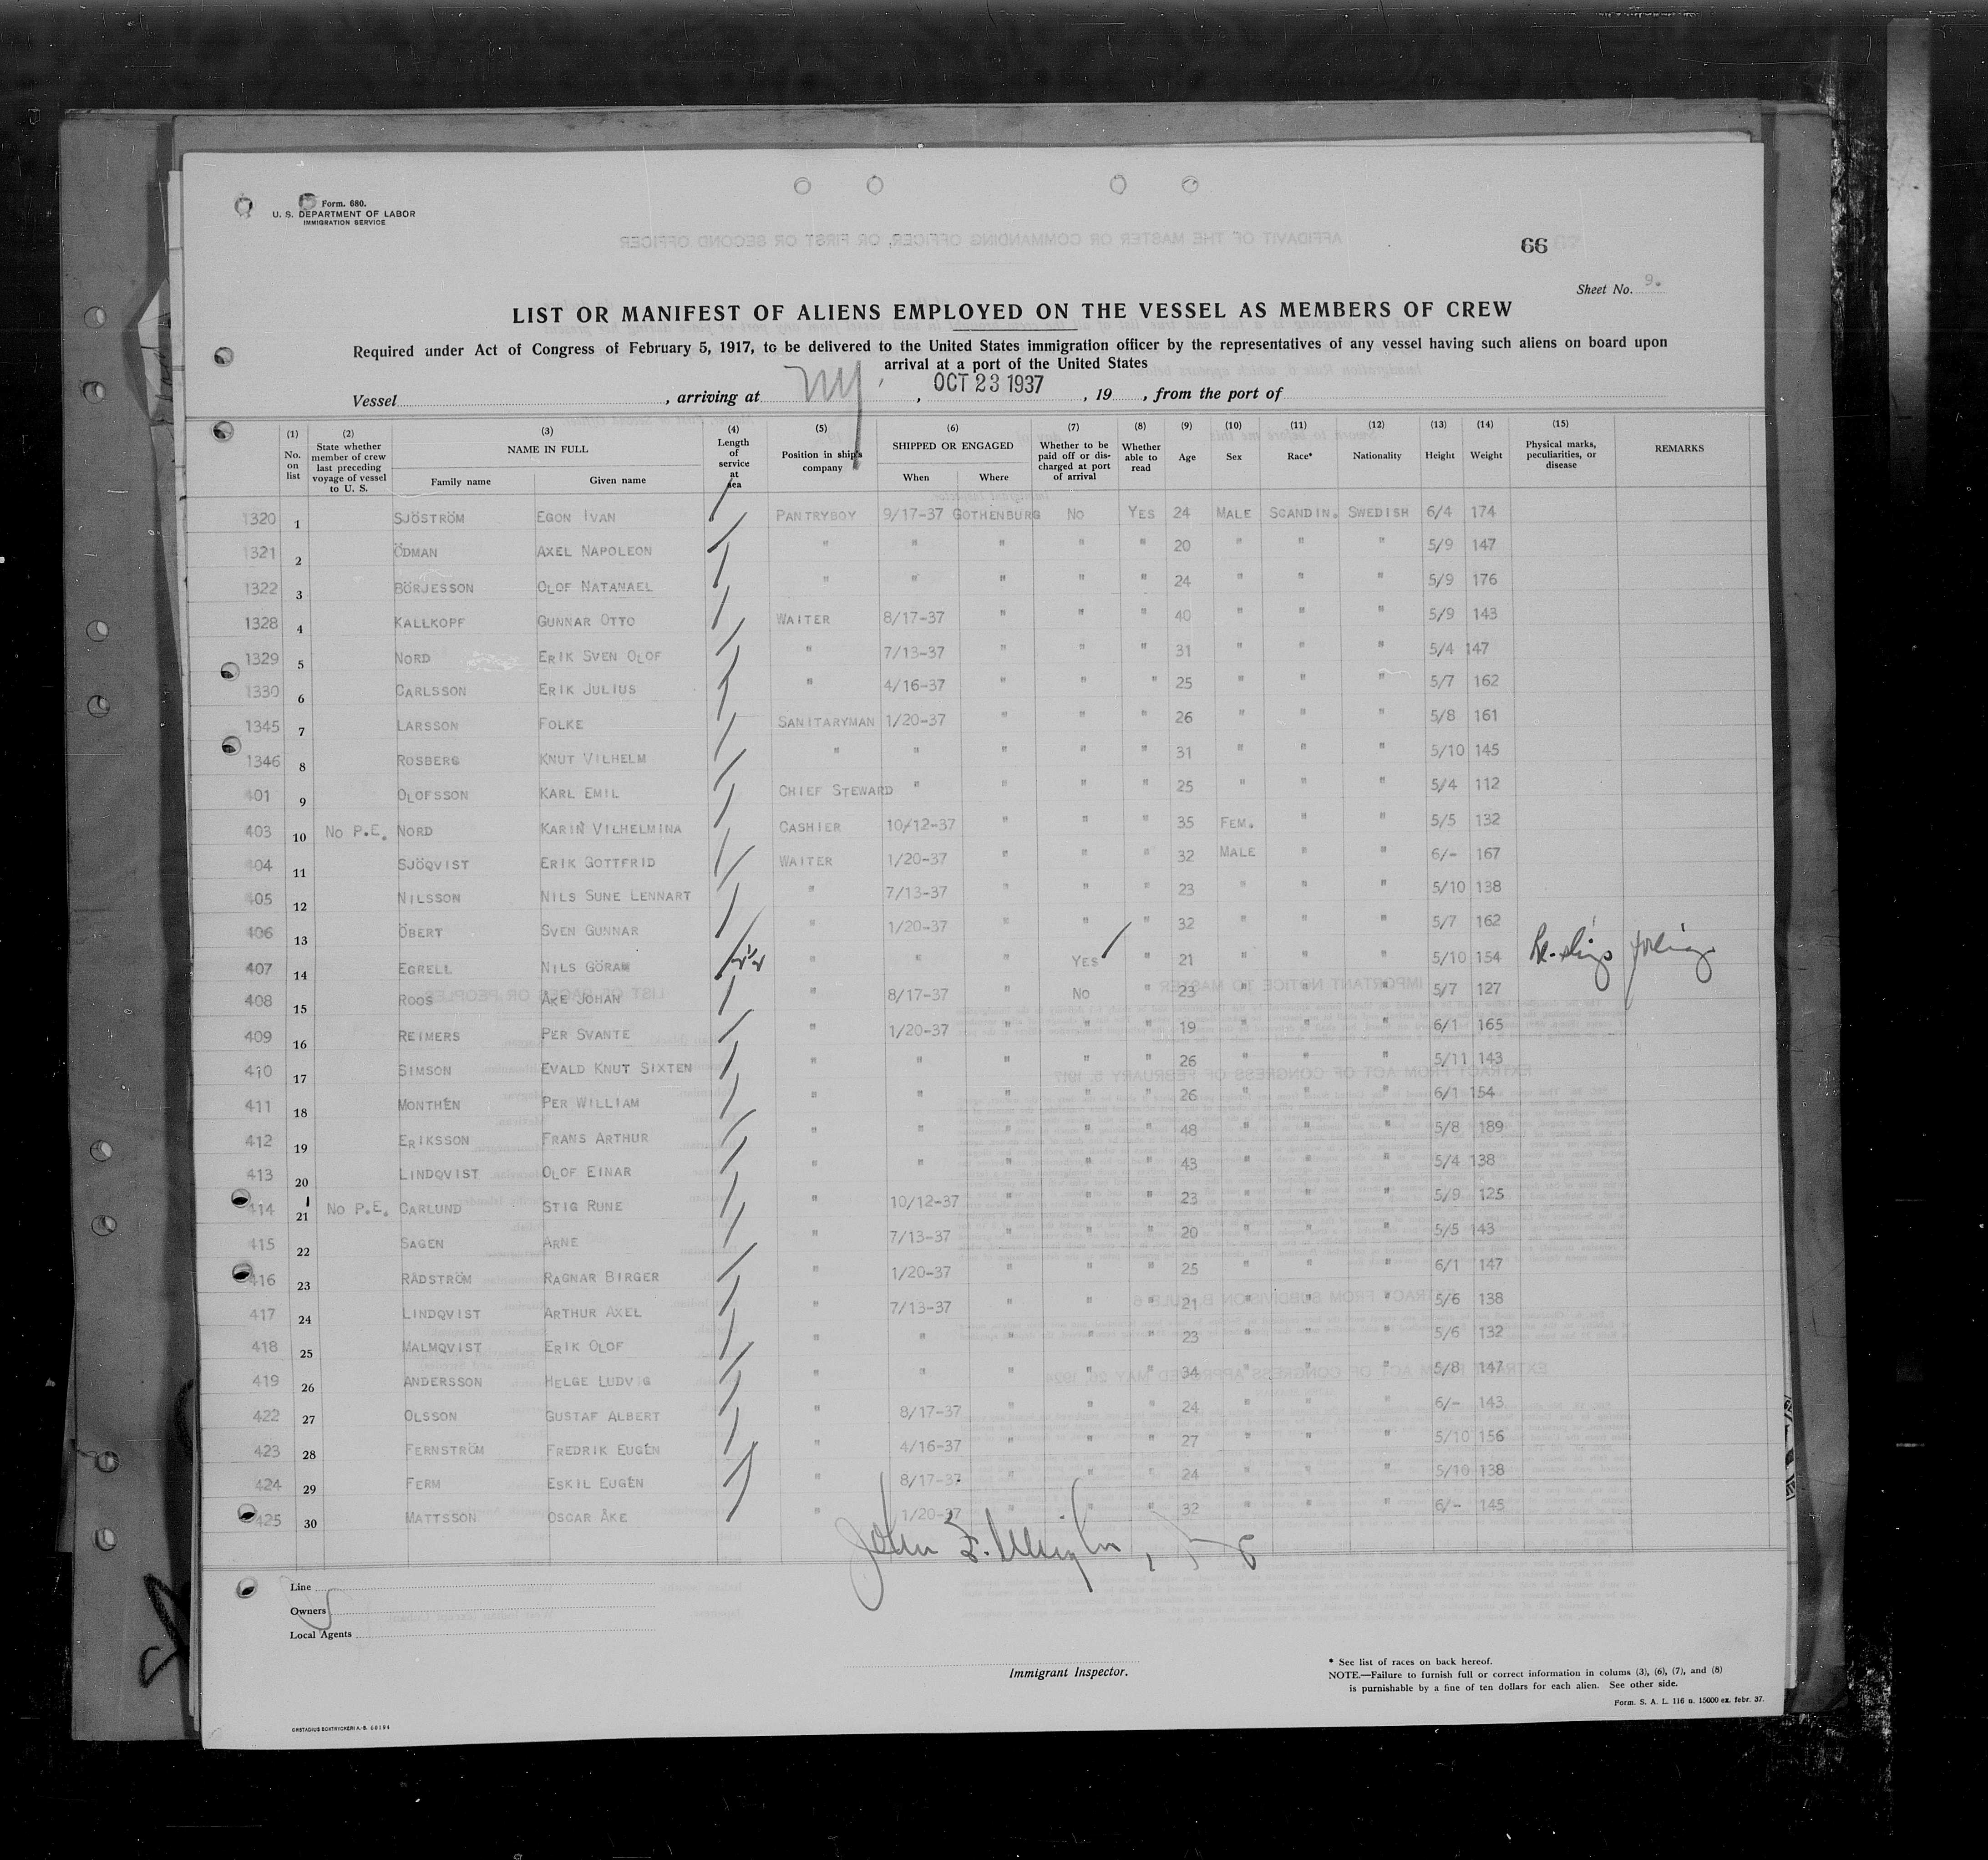 Form. 680.
U. S. DEPARTMENT OF LABOR
IMMIGRATION SERVICE
66
Sheet No. 9.
LIST OR MANIFEST OF ALIENS EMPLOYED ON THE VESSEL AS MEMBERS OF CREW
Required under Act of Congress of February 5, 1917, to be delivered to the United States immigration officer by the representatives of any vessel having such aliens on board upon
arrival at a port of the United States
Vessel , arriving at NY , OCT 23 1937 , 19 , from the port of
(1) No. on list (2) State whether member of crew last preceding voyage of vessel to U. S. (3) NAME IN FULL Family name Given name (4) Length of service at sea (5) Position in ship's company (6) SHIPPED OR ENGAGED When Where (7) Whether to be paid off or discharged at port of arrival (8) Whether able to read (9) Age (10) Sex (11) Race* (12) Nationality (13) Height (14) Weight (15) Physical marks, peculiarities, or disease REMARKS
1320 1 SJÖSTRÖM EGON IVAN PANTRYBOY 9/17-37 GOTHENBURG NO YES 24 MALE SCANDIN. SWEDISH 6/4 174
1321 2 ÖDMAN AXEL NAPOLEON " " " " " 20 " " " 5/9 147
1322 3 BÖRJESSON OLOF NATANAEL " " " " " 24 " " " 5/9 176
1328 4 KALLKOPF GUNNAR OTTO WAITER 8/17-37 " " " 40 " " " 5/9 143
1329 5 NORD ERIK SVEN OLOF " 7/13-37 " " " 31 " " " 5/4 147
1330 6 CARLSSON ERIK JULIUS " 4/16-37 " " " 25 " " " 5/7 162
1345 7 LARSSON FOLKE SANITARYMAN 1/20-37 " " " 26 " " " 5/8 161
1346 8 ROSBERG KNUT VILHELM " " " " " 31 " " " 5/10 145
401 9 OLOFSSON KARL EMIL CHIEF STEWARD " " " " 25 " " " 5/4 112
403 10 NO P.E. NORD KARIN VILHELMINA CASHIER 10/12-37 " " " 35 FEM. " " 5/5 132
404 11 SJÖQVIST ERIK GOTTFRID WAITER 1/20-37 " " " 32 MALE " " 6/- 167
405 12 NILSSON NILS SUNE LENNART " 7/13-37 " " " 23 " " " 5/10 138
406 13 ÖBERT SVEN GUNNAR " 1/20-37 " " " 32 " " " 5/7 162
407 14 EGRELL NILS GÖRAN " " " YES " 21 " " " 5/10 154
408 15 ROOS ÅKE JOHAN " 8/17-37 " NO " 23 " " " 5/7 127
409 16 REIMERS PER SVANTE " 1/20-37 " " " 19 " " " 6/1 165
410 17 SIMSON EVALD KNUT SIXTEN " " " " " 26 " " " 5/11 143
411 18 MONTHÉN PER WILLIAM " " " " " 26 " " " 6/1 154
412 19 ERIKSSON FRANS ARTHUR " " " " " 48 " " " 5/8 189
413 20 LINDQVIST OLOF EINAR " " " " " 43 " " " 5/4 138
414 21 NO P.E. CARLUND STIG RUNE " 10/12-37 " " " 23 " " " 5/9 125
415 22 SAGEN ARNE " 7/13-37 " " " 20 " " " 5/5 143
416 23 RÅDSTRÖM RAGNAR BIRGER " 1/20-37 " " " 25 " " " 6/1 147
417 24 LINDQVIST ARTHUR AXEL " 7/13-37 " " " 21 " " " 5/6 138
418 25 MALMQVIST ERIK OLOF " " " " " 23 " " " 5/6 132
419 26 ANDERSSON HELGE LUDVIG " " " " " 34 " " " 5/8 147
422 27 OLSSON GUSTAF ALBERT " 8/17-37 " " " 24 " " " 6/- 143
423 28 FERNSTRÖM FREDRIK EUGÉN " 4/16-37 " " " 27 " " " 5/10 156
424 29 FERM ESKIL EUGÉN " 8/17-37 " " " 24 " " " 5/10 138
425 30 MATTSSON OSCAR ÅKE " 1/20-37 " " " 32 " " " 6/- 145
Line
Owners
Local Agents
Immigrant Inspector.
* See list of races on back hereof.
NOTE.—Failure to furnish full or correct information in colums (3), (6), (7), and (8)
is purnishable by a fine of ten dollars for each alien. See other side.
Form. S. A. L. 116 n. 15000 ex. febr. 37.